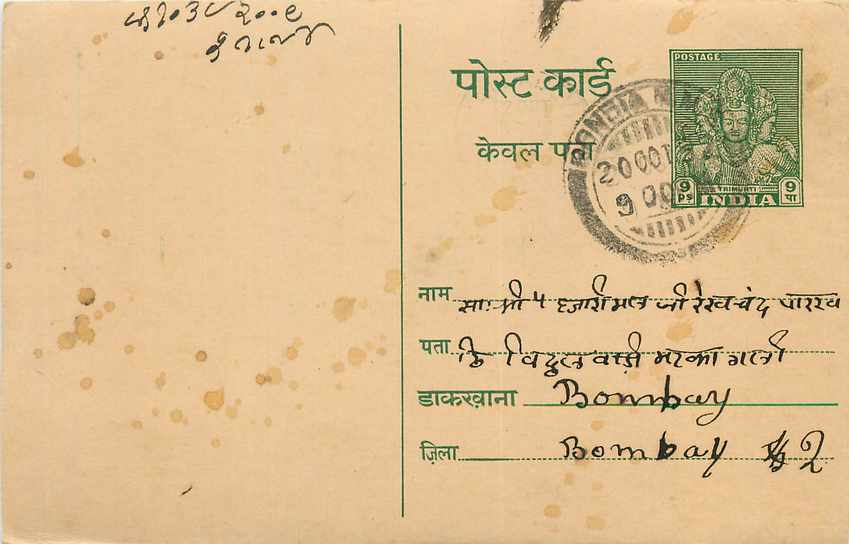 २००९
पोस्ट कार्ड
केवल पता
POSTAGE
9 PS
TRIMURTI
INDIA
9 पा
GONDIA
20 OCT
9 00
नाम सा. श्री ५ हजारीमल जी रेखचंद पारख
पता ठि विट्ठल वाडी मरका गली
डाकख़ाना Bombay
ज़िला Bombay 2